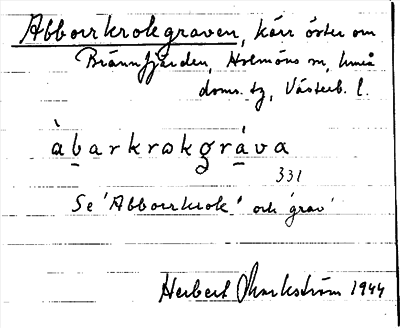 Abborrkrokgraven, kärr öster om
Brännfjärden, Holmöns sn, Umeå
doms. tg, Västerb. l.
àbarkrokgráva
331
Se 'Abborrkrok' och 'grav'
Herbert Markström 1944